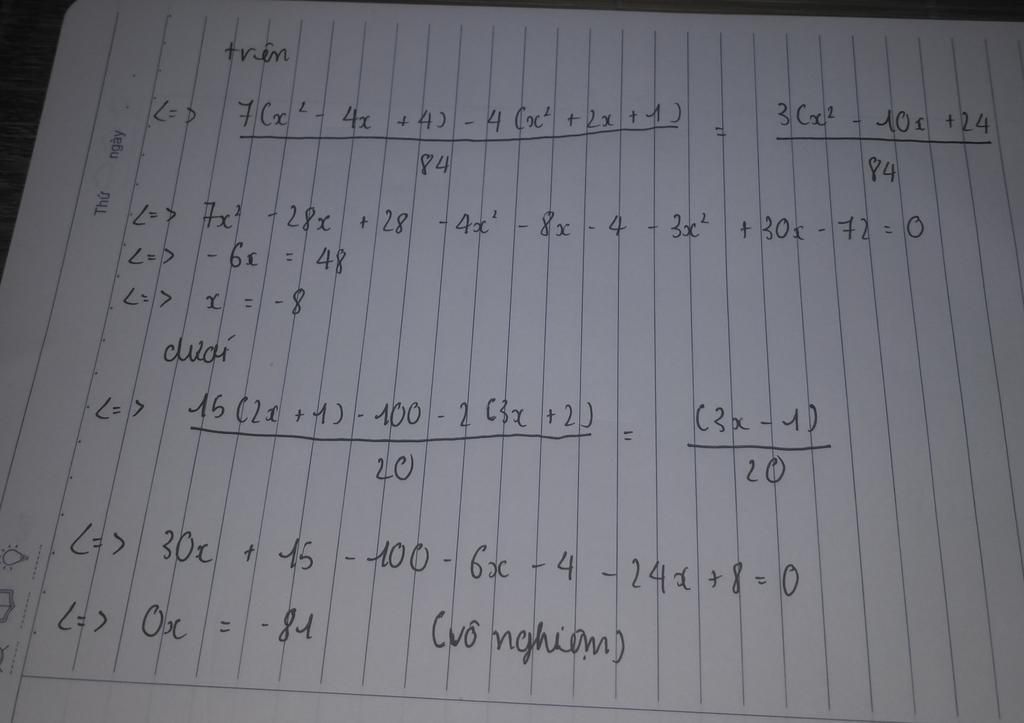 trên
<=> 7(x² - 4x + 4) - 4(x² + 2x + 1) / 84 = 3(x² - 10x + 24 / 84
Thứ ngày
<=> 7x² - 28x + 28 - 4x² - 8x - 4 - 3x² + 30x - 72 = 0
<=> - 6x = 48
<=> x = -8
dưới
<=> 15(2x + 1) - 100 - 2(3x + 2) / 20 = (3x - 1) / 20
<=> 30x + 15 - 100 - 6x - 4 - 24x + 8 = 0
<=> 0x = -81 (vô nghiệm)